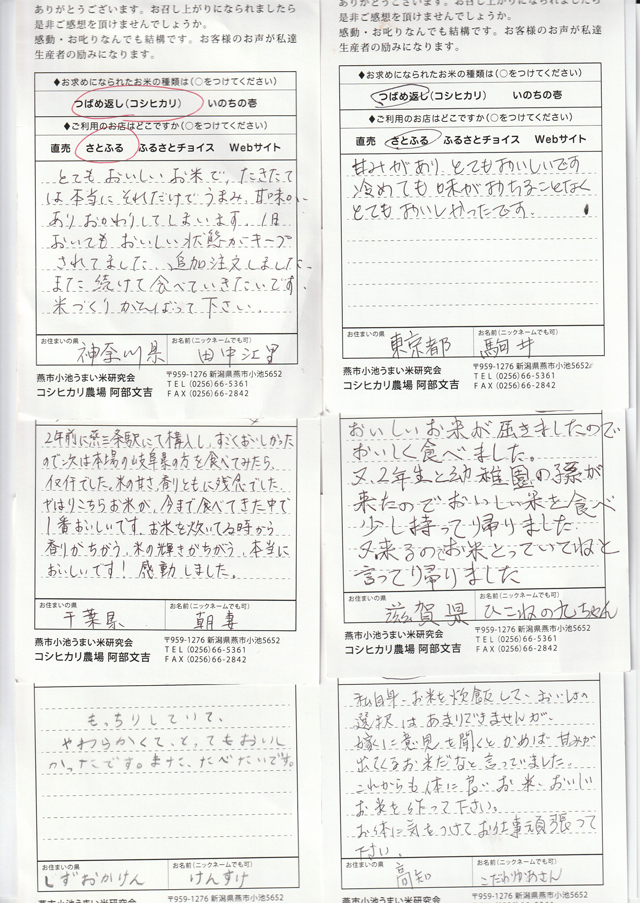 ありがとうございます。お召し上がりになられましたら
是非ご感想を頂けませんでしょうか。
感動・お叱りなんでも結構です。お客様のお声が私達
生産者の励みになります。
◆お求めになられたお米の種類は(○をつけてください)
つばめ返し(コシヒカリ) いのちの壱
◆ご利用のお店はどこですか(○をつけてください)
直売 さとふる ふるさとチョイス Webサイト
とてもおいしいお米で、たきたて
は本当にそれだけでうまみ、甘味が
ありおかわりしてしまいます。1日
おいてもおいしい状態がキープ
されてました。追加注文しました。
また続けて食べていきたいです。
米づくりがんばって下さい。
お住まいの県 お名前(ニックネームでも可)
神奈川県 田中江里
燕市小池うまい米研究会
コシヒカリ農場 阿部文吉
〒959-1276 新潟県燕市小池5652
TEL (0256)66-5361
FAX (0256)66-2842
ありがとうございます。お召し上がりになられましたら
是非ご感想を頂けませんでしょうか。
感動・お叱りなんでも結構です。お客様のお声が私達
生産者の励みになります。
◆お求めになられたお米の種類は(○をつけてください)
つばめ返し(コシヒカリ) いのちの壱
◆ご利用のお店はどこですか(○をつけてください)
直売 さとふる ふるさとチョイス Webサイト
甘みがあり とてもおいしいです
冷めても味がおちることなく
とてもおいしかったです。
お住まいの県 お名前(ニックネームでも可)
東京都 駒井
燕市小池うまい米研究会
コシヒカリ農場 阿部文吉
〒959-1276 新潟県燕市小池5652
TEL (0256)66-5361
FAX (0256)66-2842
2年前に燕三条駅にて購入し、すごくおいしかった
ので次は本場の岐阜県の方を食べてみたら、
仅仔でした。米の甘さ、香りともに残念でした。
やはりこちらお米が、今まで食べてきた中で
1番おいしいです。お米を炊いてる時から
香りがちがう、米の輝きがちがう、本当に
おいしいです!感動しました。
お住まいの県 お名前(ニックネームでも可)
千葉県 朝妻
燕市小池うまい米研究会
コシヒカリ農場 阿部文吉
〒959-1276 新潟県燕市小池5652
TEL (0256)66-5361
FAX (0256)66-2842
おいしいお米が届きましたので
おいしく食べました。
又、2年生と幼稚園の孫が
来たのでおいしい米を食べ
少し持って帰りました
又来るのでお米とっていてねと
言って帰りました
お住まいの県 お名前(ニックネームでも可)
滋賀県 ひこねの九ちゃん
燕市小池うまい米研究会
コシヒカリ農場 阿部文吉
〒959-1276 新潟県燕市小池5652
TEL (0256)66-5361
FAX (0256)66-2842
もっちりしていて、
やわらかくて、とってもおいし
かったです。また、たべたいです。
お住まいの県 お名前(ニックネームでも可)
しずおかけん けんすけ
〒959-1276 新潟県燕市小池5652
私自身、お米を炊飯して、おいしさの
選択はあまりできませんが、
嫁に意見を聞くと かめば甘みが
出てくるお米だなと言っていました。
これからも体に良いお米、おいしい
お米を作って下さい。
お体に気をつけてお仕事頑張って
下さい。
お住まいの県 お名前(ニックネームでも可)
高知 こだわりかあさん
燕市小池うまい米研究会
〒959-1276 新潟県燕市小池5652